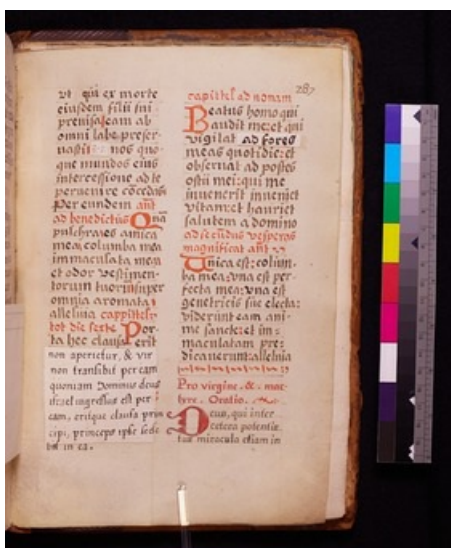 287
ut qui ex morte
eiusdem filii sui
previsa eam ab
omni labe preser
uasti nos quo
que mundos eius
intercessione ad te
peruenire cōcedas
per eundem añt
ad benedictus Quā
pulchra es amica
mea, columba mea
immaculata mea
et odor vestimen
torum tuorū super
omnia aromata
alleluia cappittelū
tot die sexte Por
ta hec clausa erit
non aperietur, & vir
non transibit per eam
quoniam Dominus deus
israel ingressus est per
eam, eritque clausa prin
cipi, princeps ipse sede
bit in ea.
capittel ad nonam
Beatus homo qui
audit me: et qui
vigilat ad fores
meas quotidie: et
obseruat ad postes
ostii mei: qui me
inuenerit inueniet
vitam: et hauriet
salutem a domino
ad secūdas vesperas
magnificat añt
Unica est: colum
ba mea: vna est per
fecta mea: vna est
genetricis sue electa:
viderunt eam ani
me sancte: et im=
maculatam pre=
dicauerunt: alleluia
Pro virgine, &. mar
tyre. Oratio.
Deus, qui inter
cetera potentiæ
tuæ miracula etiam in